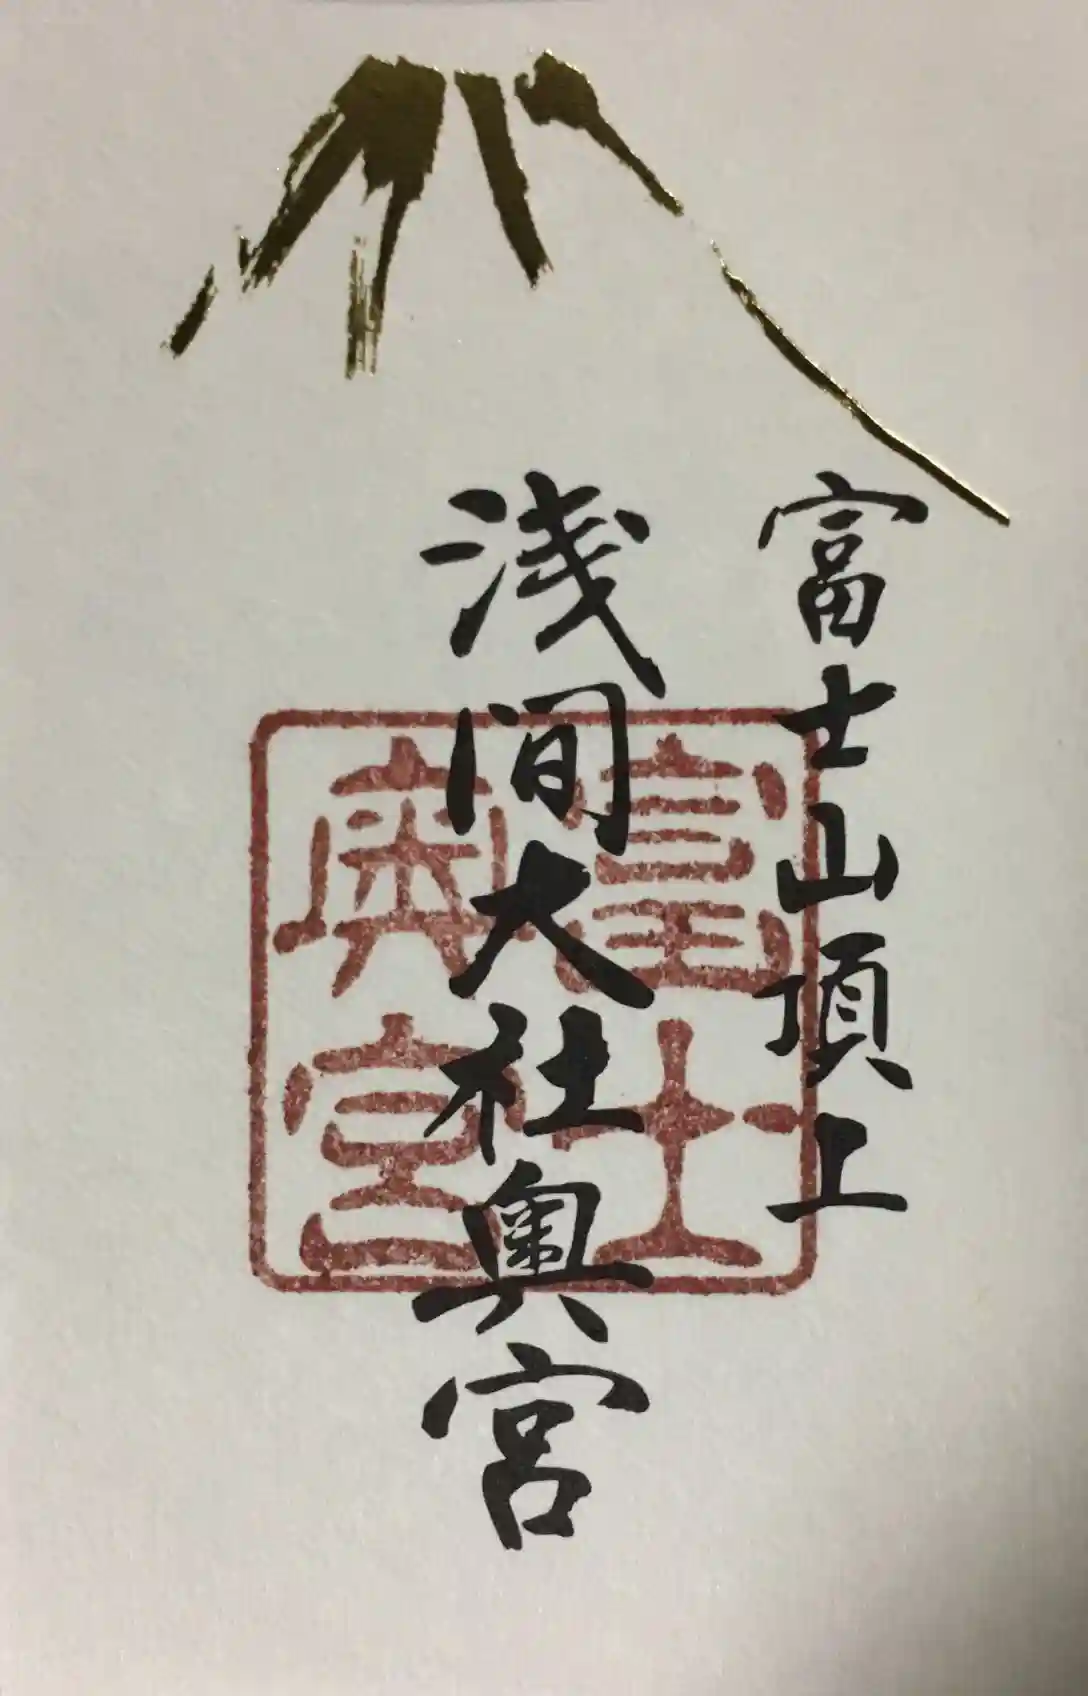 富士山頂上
浅間大社奥宮
富士
奥宮